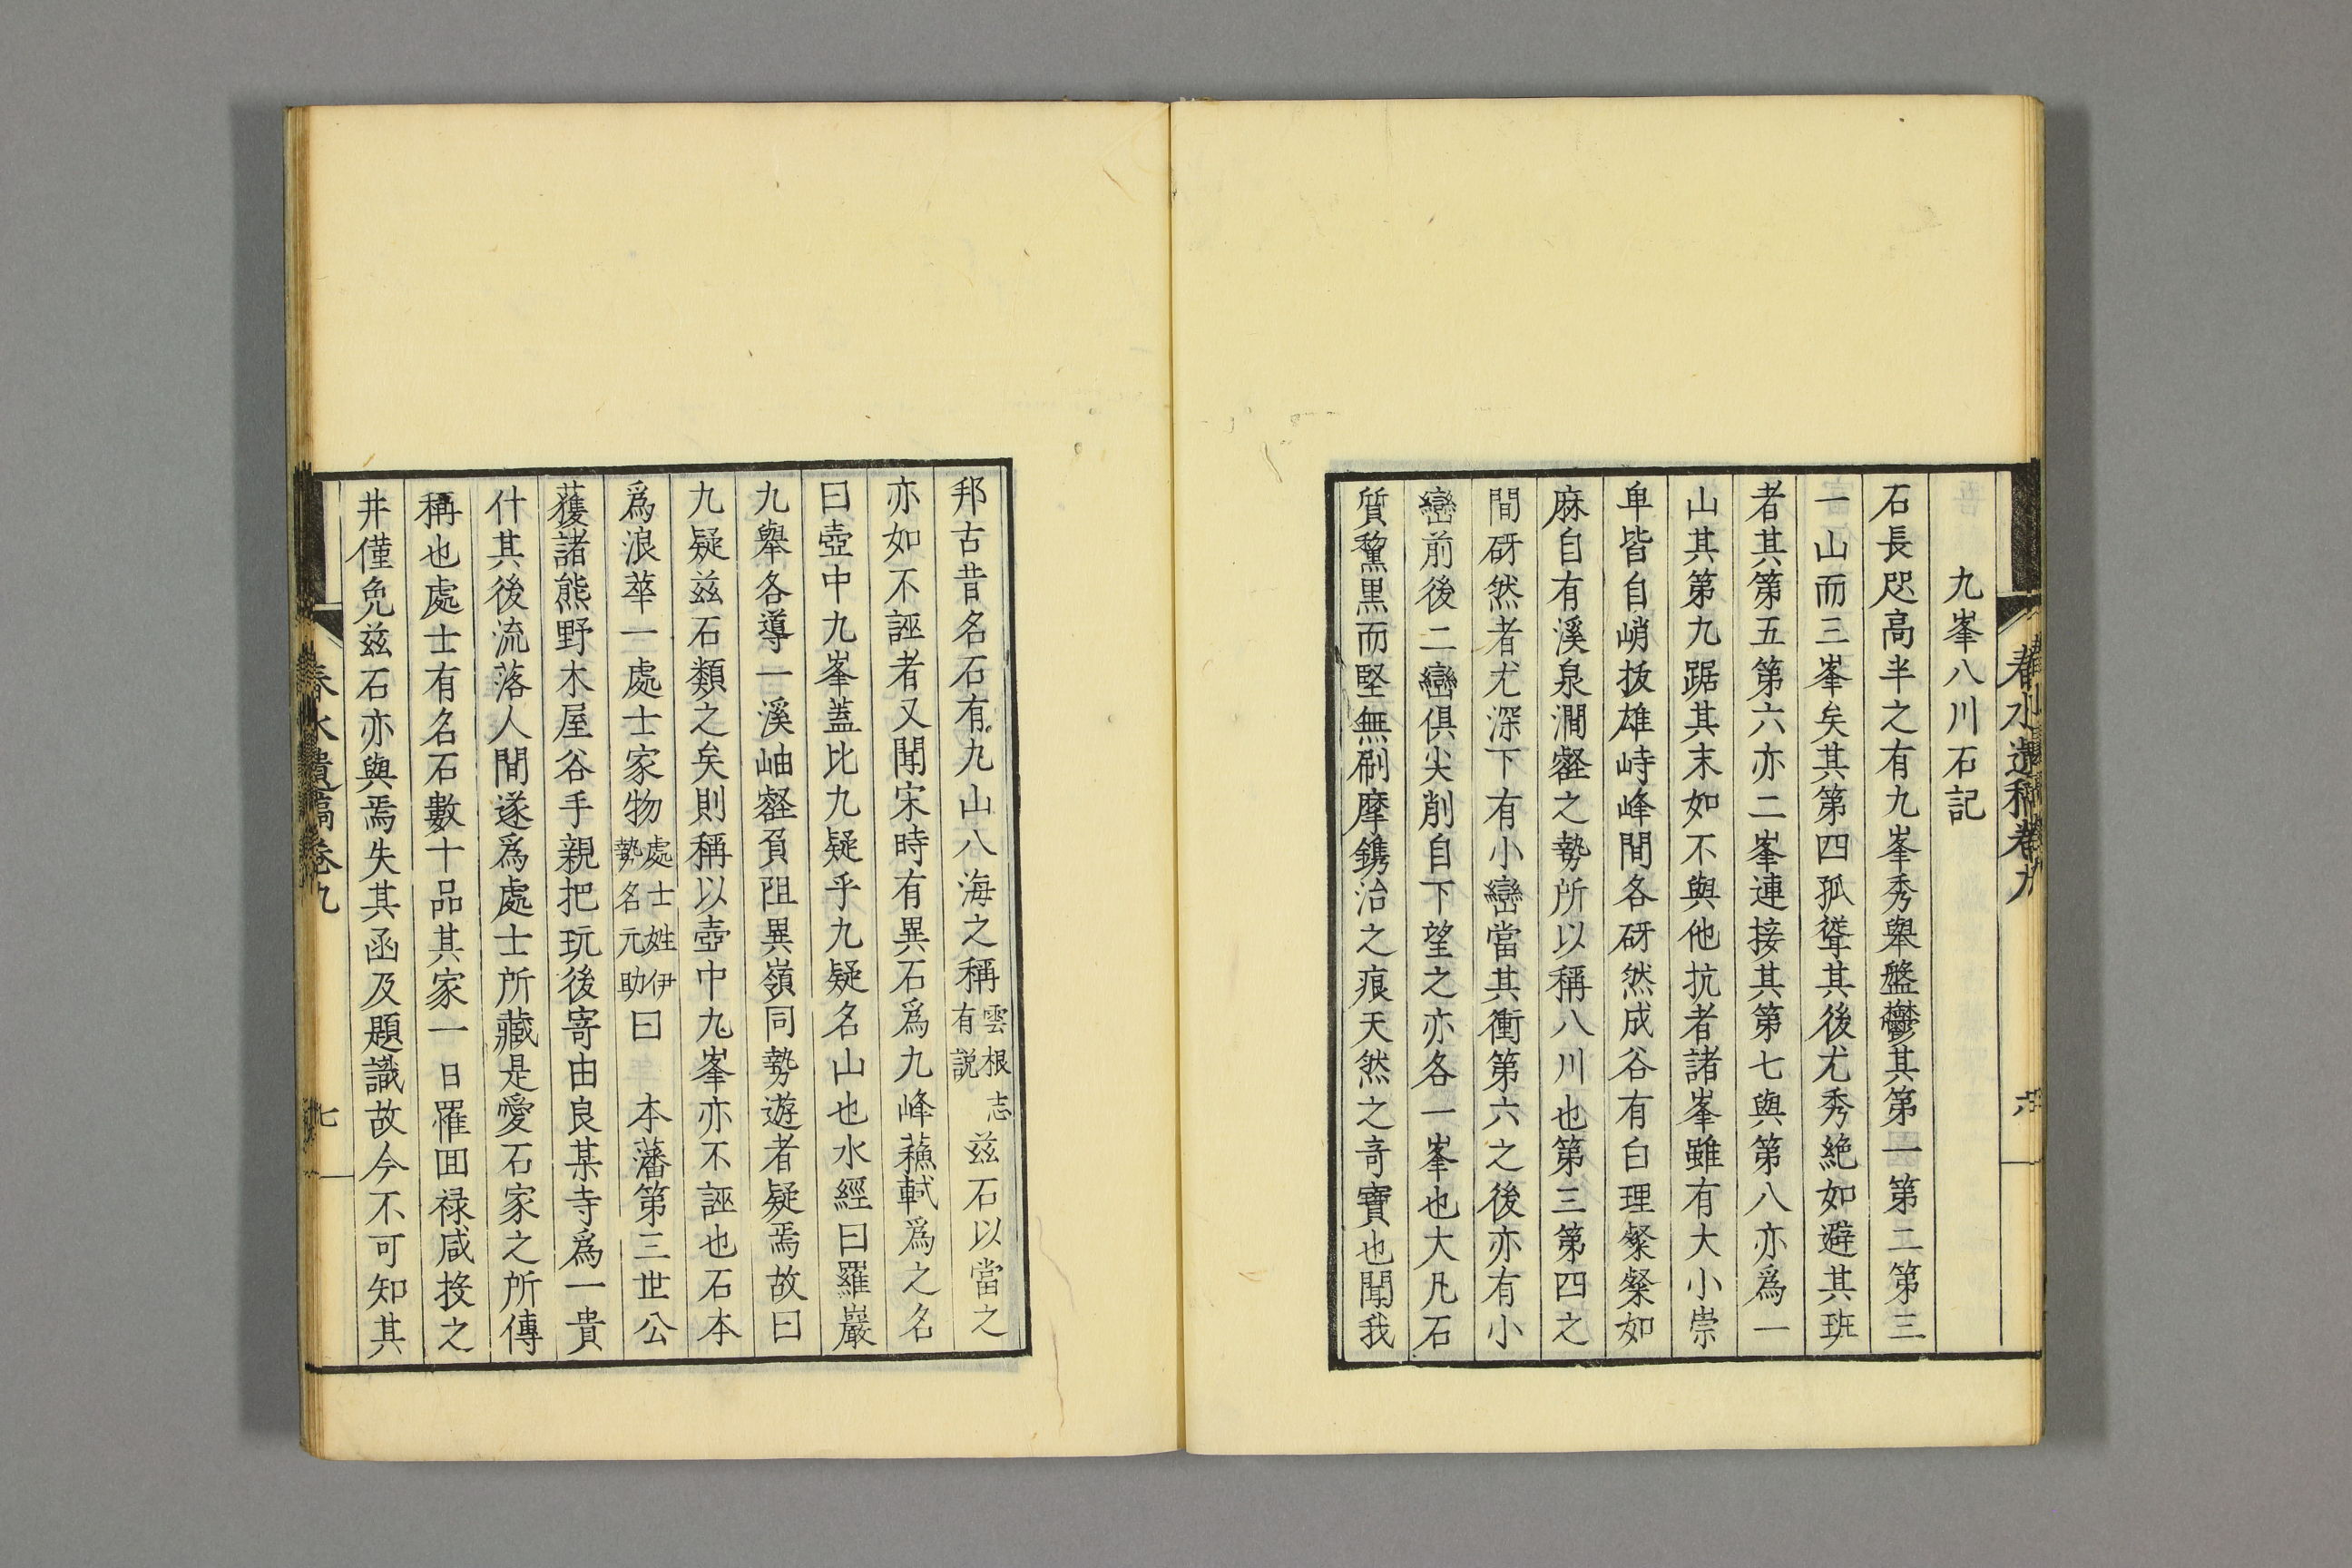 九峯八川石記
石長咫高半之有九峯秀舉盤鬱其第一第二第三
一山而三峯矣其第四孤聳其後尤秀絶如避其班
者其第五第六亦二峯連接其第七與第八亦爲一
山其第九踞其末如不與他抗者諸峯雖有大小崇
卑皆自峭拔雄峙峰間各砑然成谷有白理粲粲如
麻自有溪泉澗壑之勢所以稱八川也第三第四之
間砑然者尤深下有小巒當其衝第六之後亦有小
巒前後二巒俱尖削自下望之亦各一峯也大凡石
質黧黒而堅無刷摩鐫治之痕天然之竒寶也聞我
春水遺稿卷九
六
邦古昔名石有九山八海之稱雲根志有説兹石以當之
亦如不誣者又聞宋時有異石爲九峰蘓軾爲之名
曰壺中九峯蓋比九疑乎九疑名山也水經曰羅巖
九舉各導一溪岫壑負阻異嶺同勢遊者疑焉故曰
九疑兹石類之矣則稱以壺中九峯亦不誣也石本
爲浪華一處士家物處士姓伊勢名元助曰 本藩第三世公
獲諸熊野木屋谷手親把玩後寄由良某寺爲一貴
什其後流落人間遂爲處士所藏是愛石家之所傳
稱也處士有名石數十品其家一日罹囬禄咸投之
井僅免兹石亦與焉失其函及題識故今不可知其
春水遺稿卷九
七